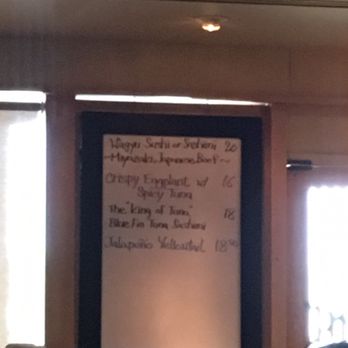 Wagyu Sushi or Sashimi 20
~Miyazaki, Japanese Beef~
Crispy Eggplant w/ 16
Spicy Tuna
The "King of Tuna" 18
Blue Fin Tuna Sashimi
Jalapeño Yellowtail 18.50